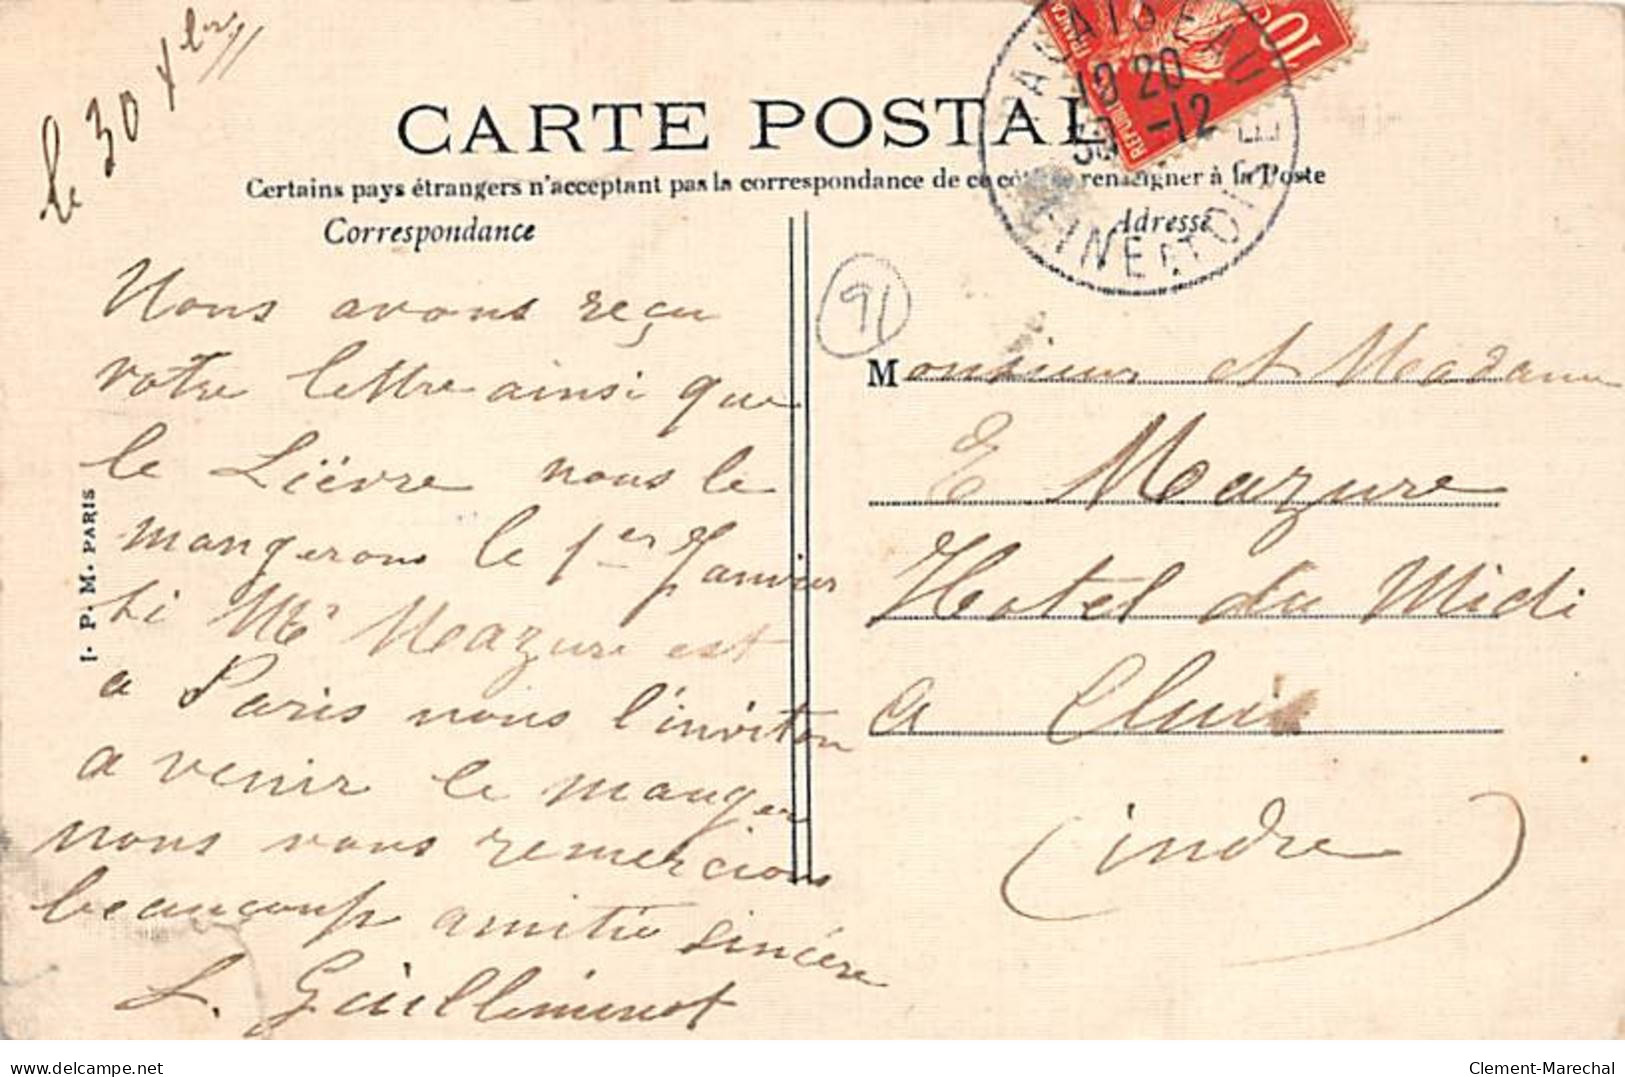 le 30 Xbre 11
CARTE POSTALE
Certains pays étrangers n'acceptant pas la correspondance de ce côté se renseigner à la Poste
Correspondance
Adresse
PALAISEAU
19 20
30 -12
SEINE ET OISE
10
REPUBLIQUE FRANÇAISE
91
Nous avons reçu
votre lettre ainsi que
le Lièvre nous le
mangerons le 1er Janvier
si Mr Meazure est
a Paris nous l'inviton
a venir le manger
nous vous remercions
beaucoup amitié sincère
L. Guilleminot
Monsieur et Meadame
E Meazure
Hotel du Midi
a Cluis
(indre)
I. P. M. PARIS
delcampe.net
Clement-Marechal